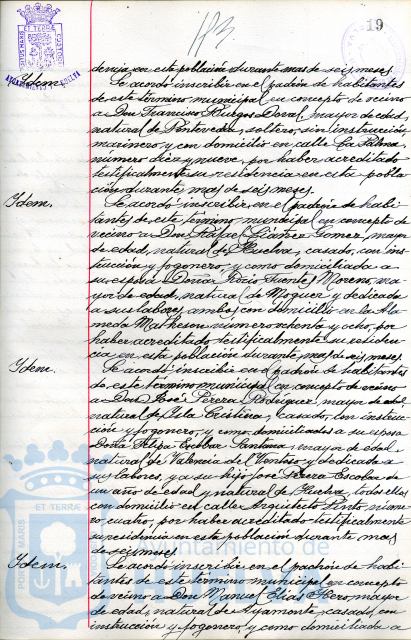 19
dencia en esta población durante mas de seis meses.
Ydem. Se acordó inscribir en el padrón de habitantes
de este término municipal en concepto de vecino
a Don Francisco Burgos Doval, mayor de edad,
natural de Pontevedra, soltero, sin instrucción,
marinero y con domicilio en calle La Palma
número diez y nueve, por haber acreditado
testificalmente su residencia en esta pobla-
ción durante mas de seis meses.
Ydem. Se acordó inscribir en el padrón de habi-
tantes de este término municipal en concepto de
vecino a Don Rafael Gómez, mayor
de edad, natural de Huelva, casado, con ins-
trucción y fogonero, y como domiciliada a
su esposa Doña Rocío Fuentes Moreno, ma-
yor de edad, natural de Moguer y dedicada
a sus labores, ambos con domicilio en la Ala-
meda Matheson número ochenta y ocho, por
haber acreditado testificalmente su residen-
cia en esta población durante mas de seis meses.
Ydem. Se acordó inscribir en el padrón de habitantes
de este término municipal en concepto de vecino
a Don José Perera Rodríguez, mayor de edad,
natural de Isla Cristina, casado, con instruc-
ción y fogonero, y como domiciliados a su esposa
Doña Felipa Escobar Santana, mayor de edad,
natural de Valencia del Ventoso y dedicada a
sus labores, y a su hijo José Perera Escobar de
un año de edad y natural de Huelva, todos ellos
con domicilio en calle Arquitecto Pinto núme-
ro cuatro, por haber acreditado testificalmente
su residencia en esta población durante mas
de seis meses.
Ydem. Se acordó inscribir en el padrón de habi-
tantes de este término municipal en concepto
de vecino a Don Manuel Elías Otero, mayor
de edad, natural de Ayamonte, casado, con
instrucción y fogonero, y como domiciliada a
PORTUS MARIS ET TERRÆ CUSTODIA
Ayuntamiento de